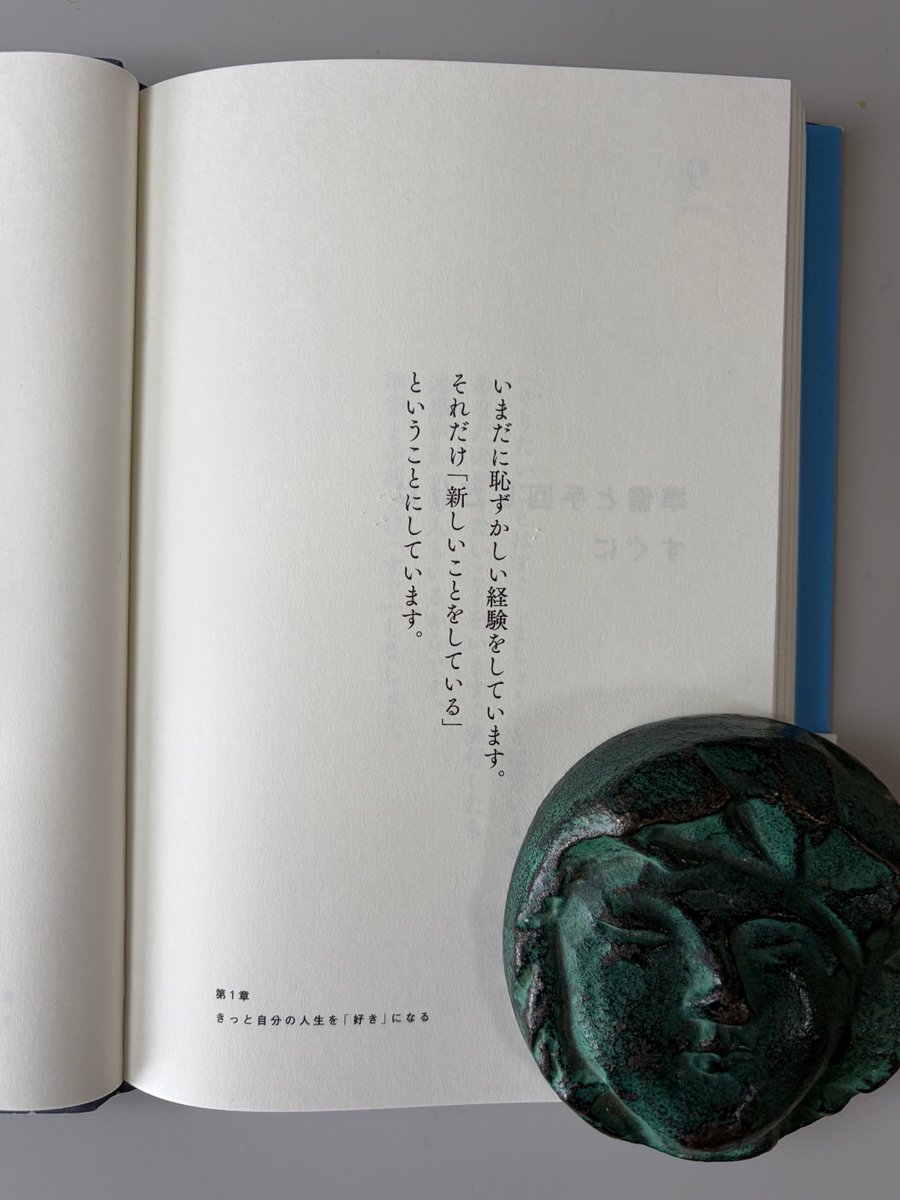 いまだに恥ずかしい経験をしています。
それだけ「新しいことをしている」
ということにしています。
第1章
きっと自分の人生を「好き」になる